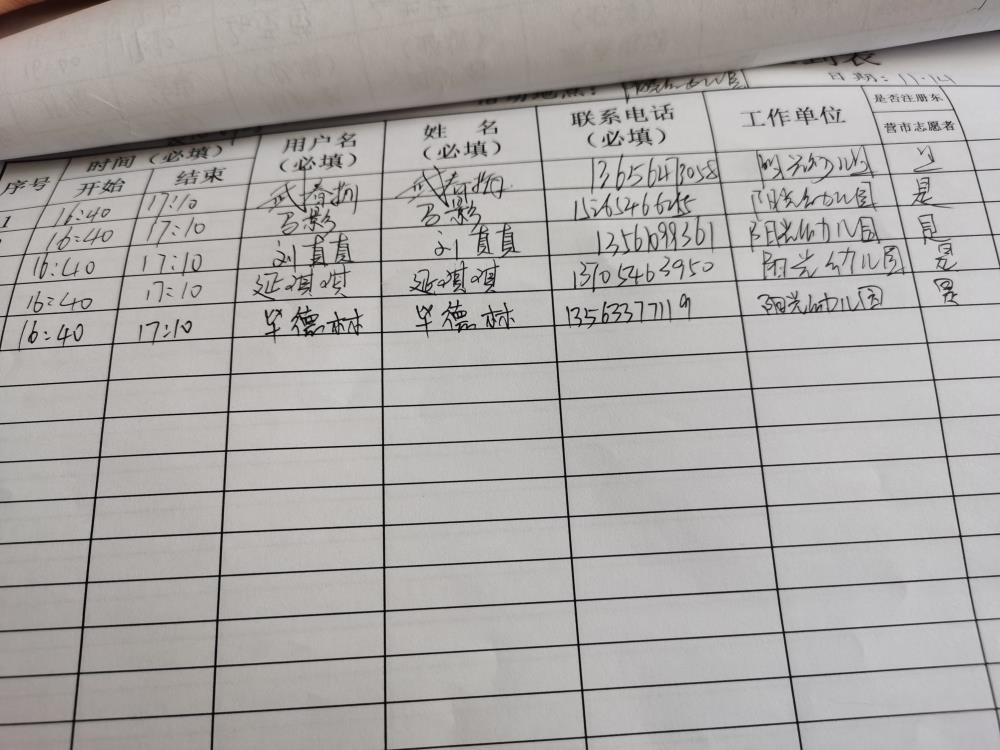 活动地点：阳光幼儿园 日期：11.14
序号 时间（必填） 开始 结束 用户名（必填） 姓 名（必填） 联系电话（必填） 工作单位 是否注册东营市志愿者
1 16:40 17:10 武春扬 武春扬 13656473058 阳光幼儿园 是
16:40 17:10 马影 马影 阳光幼儿园 是
16:40 17:10 刘真真 刘真真 1356099361 阳光幼儿园 是
16:40 17:10 延琪琪 延琪琪 13105463950 阳光幼儿园 是
16:40 17:10 毕德林 毕德林 13563377119 阳光幼儿园 是